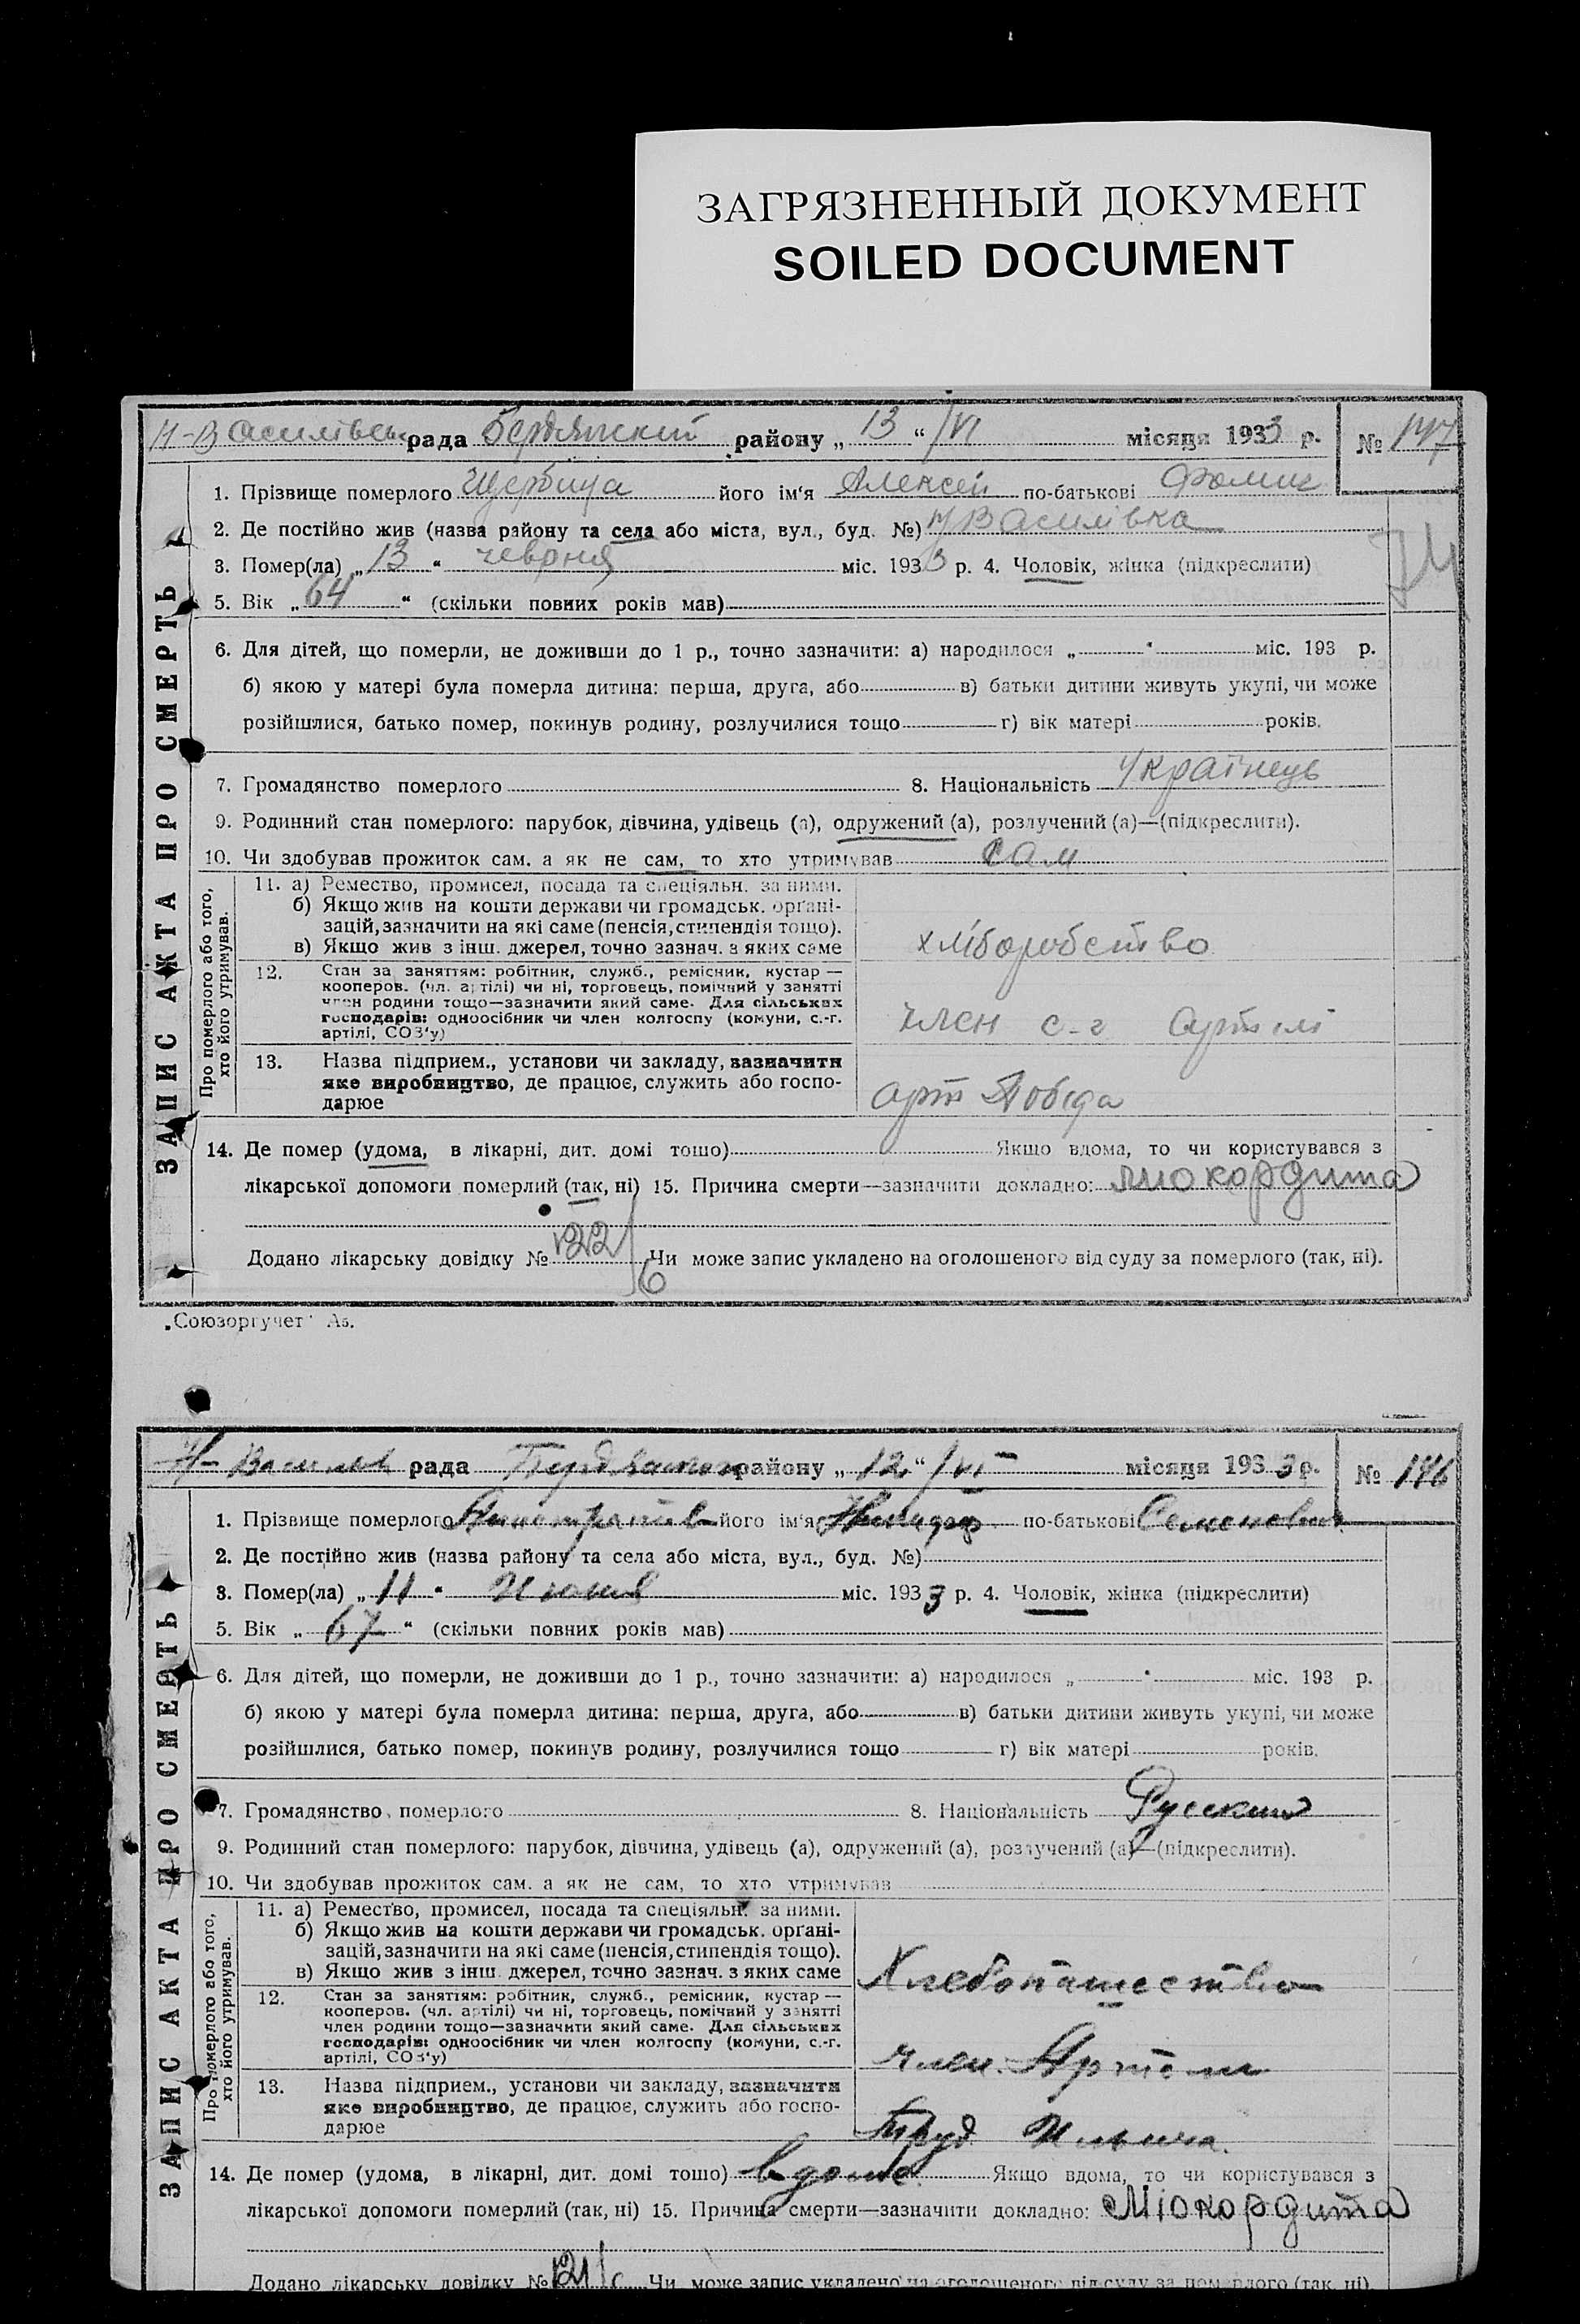 ЗАГРЯЗНЕННЫЙ ДОКУМЕНТ
SOILED DOCUMENT
Н-Василівськ рада Бердянский району „ 13 “ /VI місяця 1933 р. № 147
1. Прізвище померлого Щербица його ім‘я Алексей по-батькові Фомич
2. Де постійно жив (назва району та села або міста, вул., буд. №) Н Василівка
3. Помер(ла) „ 13 “ чевроня міс. 1933 р. 4. Чоловік, жінка (підкреслити)
5. Вік „ 64 “ (скільки повних років мав)
6. Для дітей, що померли, не доживши до 1 р., точно зазначити: а) народилося „ “ міс. 193 р.
б) якою у матері була померла дитина: перша, друга, або в) батьки дитини живуть укупі, чи може
розійшлися, батько помер, покинув родину, розлучилися тощо г) вік матері років.
7. Громадянство померлого 8. Національність Українець
9. Родинний стан померлого: парубок, дівчина, удівець (а), одружений (а), розлучений (а)—(підкреслити).
10. Чи здобував прожиток сам. а як не сам, то хто утримував сам
ЗАПИС АКТА ПРО СМЕРТЬ
Про померлого або того, хто його утримував.
11. а) Ремество, промисел, посада та спеціяльн. за ними.
б) Якщо жив на кошти держави чи громадськ. орґані-
зацій, зазначити на які саме (пенсія, стипендія тощо).
в) Якщо жив з інш. джерел, точно зазнач. з яких саме
хліборобство
12. Стан за заняттям: робітник, служб., ремісник, кустар —
кооперов. (чл. артілі) чи ні, торговець, помічний у занятті
член родини тощо—зазначити який саме. Для сільських
господарів: одноосібник чи член колгоспу (комуни, с.-г.
артілі, СОЗ‘у)
член с-г артілі
13. Назва підприєм., установи чи закладу, зазначити
яке виробництво, де працює, служить або госпо-
дарює
арт Побіда
14. Де помер (удома, в лікарні, дит. домі тощо) Якщо вдома, то чи користувався з
лікарської допомоги померлий (так, ні) 15. Причина смерти—зазначити докладно: миокордита
Додано лікарську довідку № 122/6 Чи може запис укладено на оголошеного від суду за померлого (так, ні).
„Союзоргучет“ Аз.
Н- Василівк рада району „ 12 “ /VI місяця 1933 р. № 146
1. Прізвище померлого його ім‘я по-батькові Семенович
2. Де постійно жив (назва району та села або міста, вул., буд. №)
3. Помер(ла) „ 11 “ Июня міс. 1933 р. 4. Чоловік, жінка (підкреслити)
5. Вік „ 67 “ (скільки повних років мав)
6. Для дітей, що померли, не доживши до 1 р., точно зазначити: а) народилося „ “ міс. 193 р.
б) якою у матері була померла дитина: перша, друга, або в) батьки дитини живуть укупі, чи може
розійшлися, батько помер, покинув родину, розлучилися тощо г) вік матері років.
7. Громадянство померлого 8. Національність Русский
9. Родинний стан померлого: парубок, дівчина, удівець (а), одружений (а), розлучений (а)—(підкреслити).
10. Чи здобував прожиток сам. а як не сам, то хто утримував
ЗАПИС АКТА ПРО СМЕРТЬ
Про померлого або того, хто його утримував.
11. а) Ремество, промисел, посада та спеціяльн. за ними.
б) Якщо жив на кошти держави чи громадськ. орґані-
зацій, зазначити на які саме (пенсія, стипендія тощо).
в) Якщо жив з інш. джерел, точно зазнач. з яких саме
Хлебопашество
12. Стан за заняттям: робітник, служб., ремісник, кустар —
кооперов. (чл. артілі) чи ні, торговець, помічний у занятті
член родини тощо—зазначити який саме. Для сільських
господарів: одноосібник чи член колгоспу (комуни, с.-г.
артілі, СОЗ‘у)
член Артели
13. Назва підприєм., установи чи закладу, зазначити
яке виробництво, де працює, служить або госпо-
дарює
Труд Ильича.
14. Де помер (удома, в лікарні, дит. домі тощо) вдома Якщо вдома, то чи користувався з
лікарської допомоги померлий (так, ні) 15. Причина смерти—зазначити докладно: Міокордита
Додано лікарську довідку № 121/ Чи може запис укладено на оголошеного від суду за померлого (так, ні).